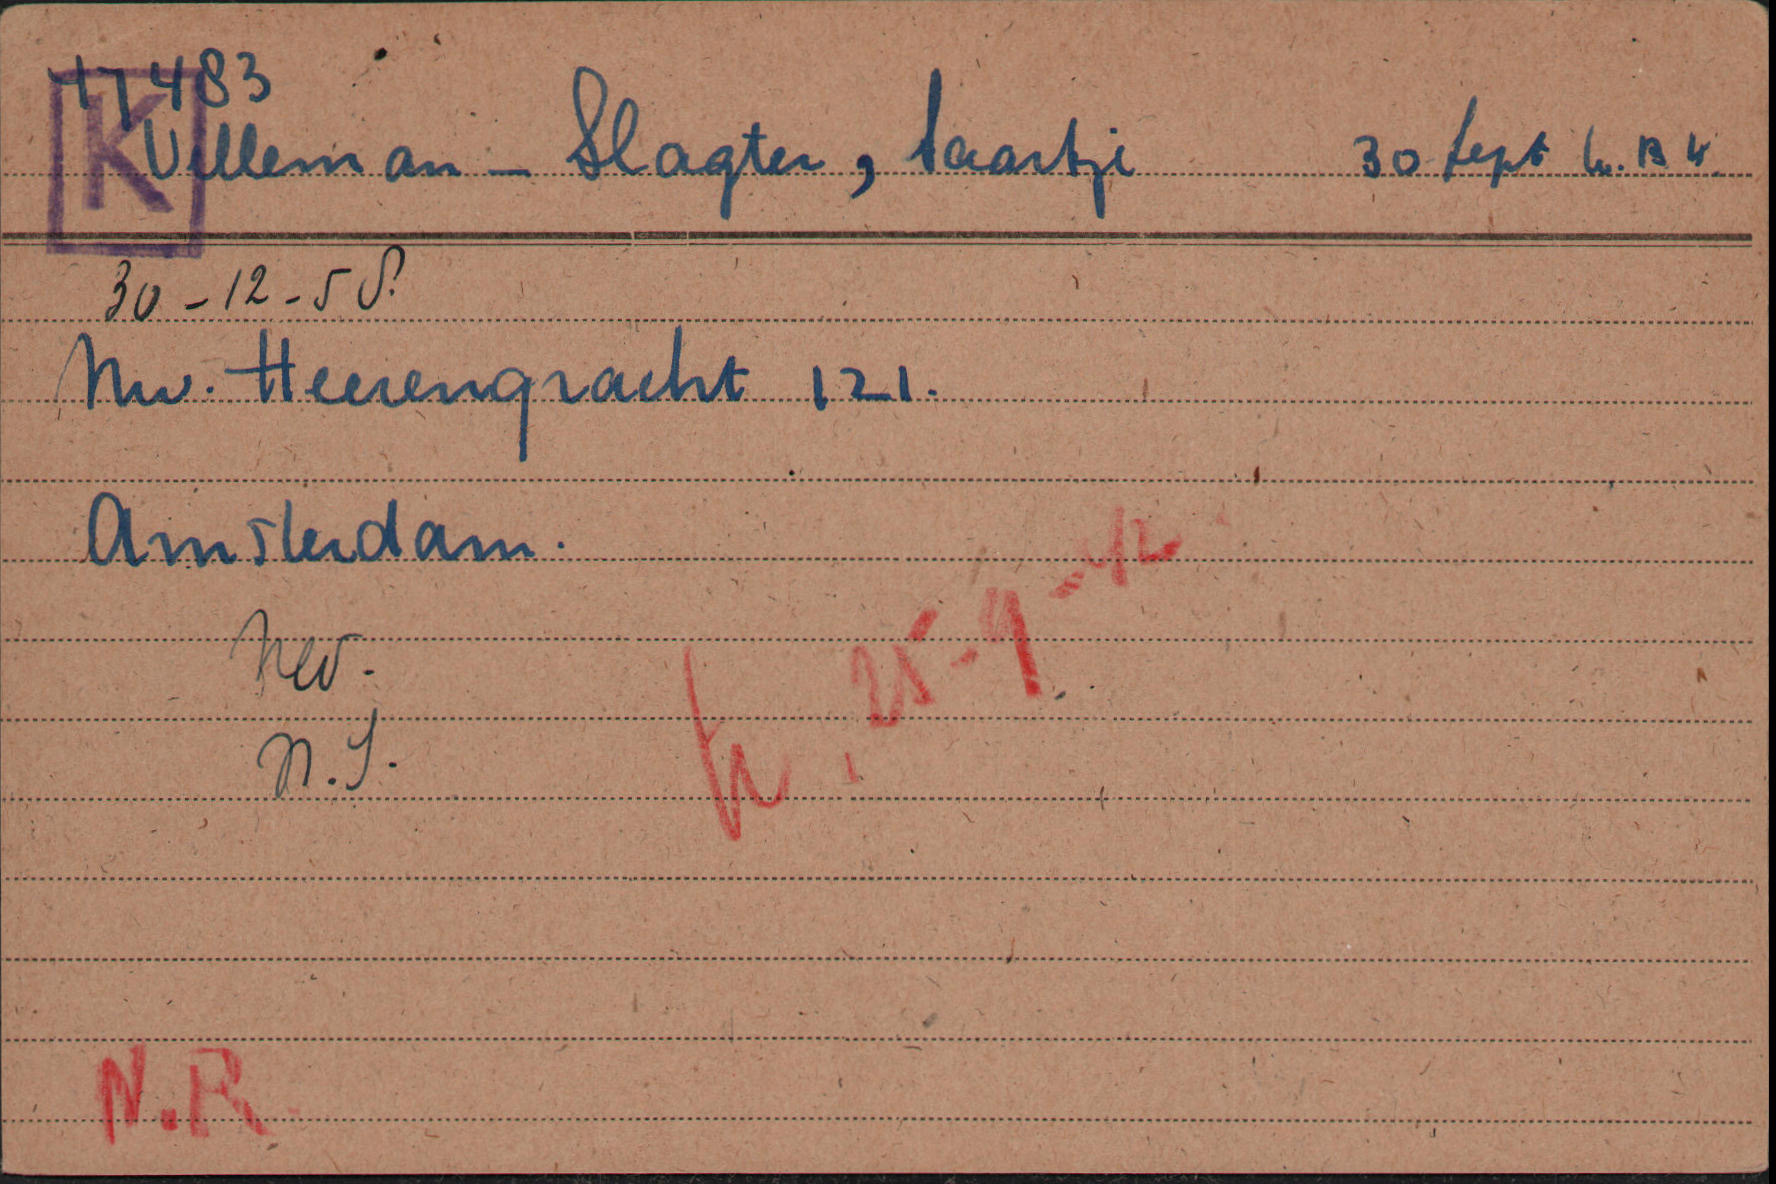 17483
K
Velleman - Slagter, Saartje 30 Sept h. B 4.
30-12-58.
Nw. Heerengracht 121.
Amsterdam.
Ned.
N.I.
tr. 25-9-42
N.R.